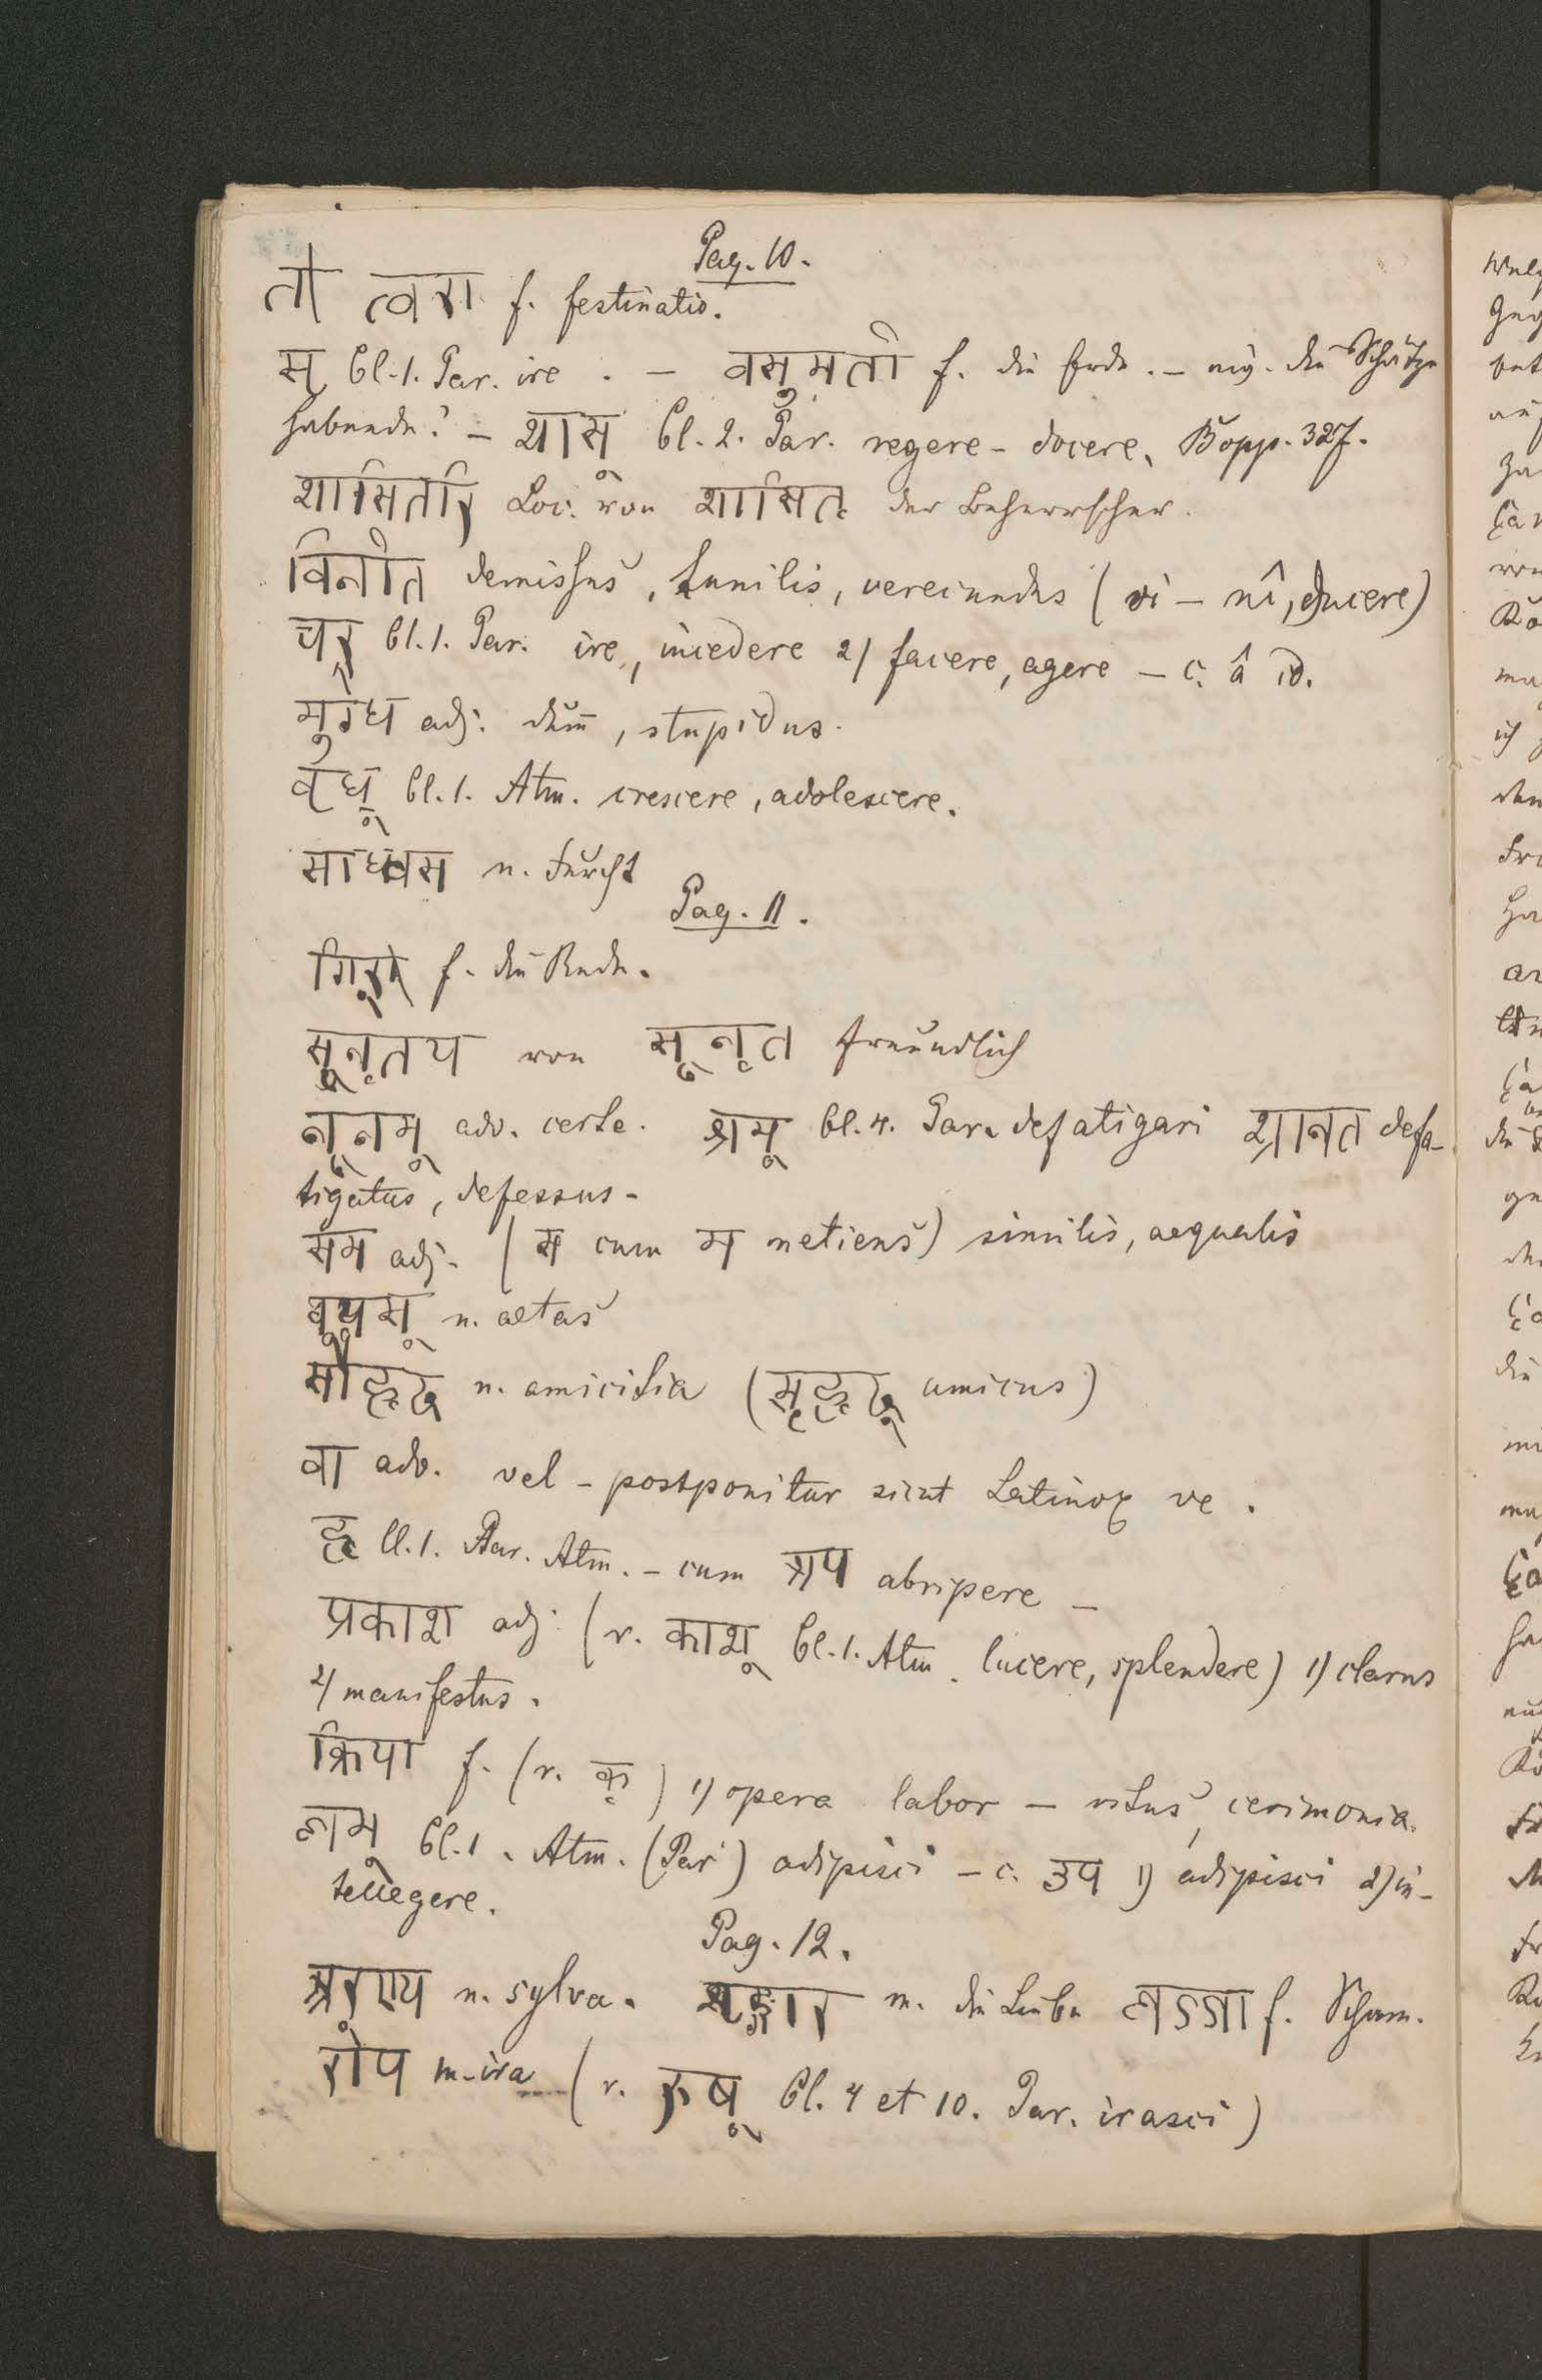 Pag. 10.
त्वरा f. festinatio.
सृ Cl. 1. Par. ire. – वसुमती f. die Erde. – eig. die Schätze
habende? – शास् Cl. 2. Par. regere – docere. Bopp. 327.
शासितरि Loc. von शासितृ der Beherrscher.
विनीत demissus, humilis, verecundus (vi – nî, ducere)
चर् Cl. 1. Par. ire, incedere 2) facere, agere – c. â id.
मुग्ध adj. dum̅, stupidus.
वृध् Cl. 1. Atm. crescere, adolescere.
साध्वस n. Furcht
Pag. 11.
f. die Rede.
सूनृतय von सूनृत freundlich
नूनम् adv. certe. श्रम् Cl. 4. Par. defatigari श्रान्त defa-
tigatus, defessus –
सम adj. (स cum म metiens) similis, aequalis
वयस् n. aetas
सौहृद n. amicitia (सुहृद् amicus)
वा adv. vel – postponitur sicut Latinor ve.
हृ Cl. 1. Par. Atm. – cum अप abripere –
प्रकाश adj. (r. काश् Cl. 1. Atm. lucere, splendere) 1) clarus
2) manifestus.
क्रिया f. (r. कृ) 1) opera labor – ritus, cerimonia.
लभ् Cl. 1. Atm. (Par) adipisci – c. उप 1) adipisci 2) in-
tellegere.
Pag. 12.
अरण्य n. sylva. शृङ्गार m. die Liebe लज्जा f. Scham.
रोष m. ira (r. रुष् Cl. 4 et 10. Par. irasci)